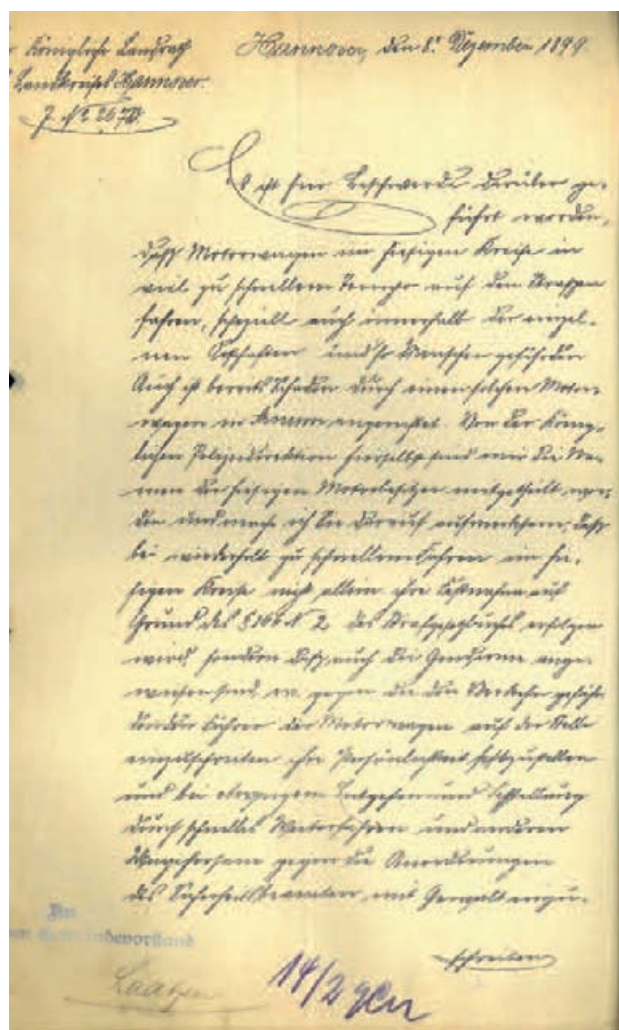 Königliche Landrath
Landkreises Hannover.
J. № 2670.
Hannover, den 8. Dezember 1899.
Es ist hier Beschwerde darüber ge-
führt worden,
daß Motorwagen im hiesigen Kreise in
viel zu schnellem Tempo auf den Strassen
fahren, speziell auch innerhalb der einzel-
nen Ortschaften und so Menschen gefährden
Auch ist bereits Schaden durch einen solchen Motor-
wagen in angerichtet. Von der König-
lichen Polizeidirektion hierselbst sind mir die Na-
men der hiesigen Motorbesitzer mitgetheilt wor-
den und mache ich Sie darauf aufmerksam, daß
bei wiederholt zu schnellem Fahren im hie-
sigen Kreise nicht allein ihre auf
Grund des § 366 № 2 des Strafgesetzbuches erfolgen
wird, sondern daß auch die Gendarmen ange-
wiesen sind, ev. gegen die den Verkehr gefähr-
denden Führer der Motorwagen auf der Stelle
einzuschreiten ihre Persönlichkeit festzustellen
und bei etwaigem Entgehen und
durch schnelles Weiterfahren und anderen
Ungehorsam gegen die Anordnungen
des Sicherheitsbeamten, mit Gewalt einzu-
schreiten
An
Gemeindevorstand
Laatzen
14/2